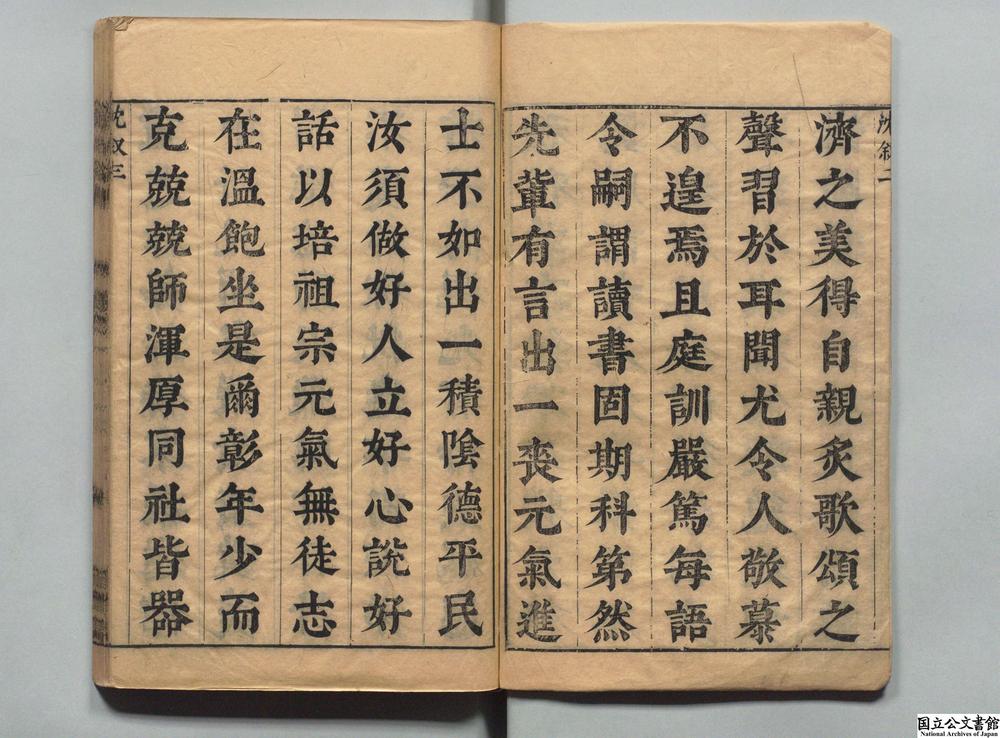 沈敘二
濟之美得自親炙歌頌之
聲習於耳聞尤令人敬慕
不遑焉且庭訓嚴篤每語
令嗣謂讀書固期科第然
先軰有言出一喪元氣進
士不如出一積隂德平民
汝須做好人立好心説好
話以培祖宗元氣無徒志
在溫飽坐是爾彰年少而
克兢兢師渾厚同社皆器
沈敘三
国立公文書館
National Archives of Japan